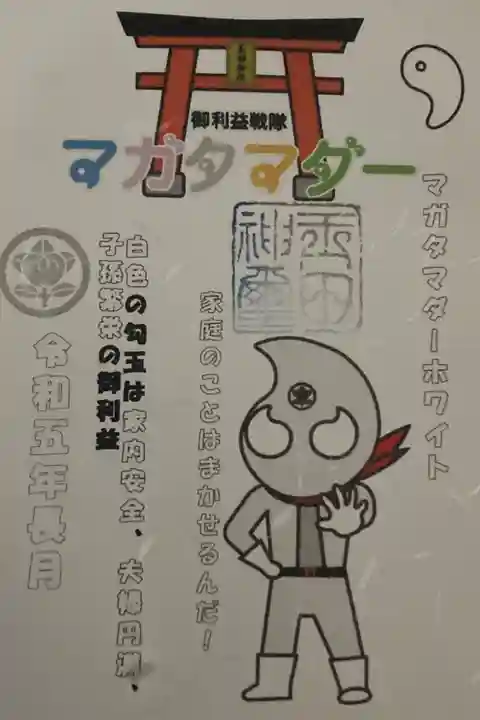 御利益戦隊
マガタマダー
マガタマダーホワイト
家庭のことはまかせるんだ！
白色の勾玉は家内安全、夫婦円満、
子孫繁栄の御利益
令和五年長月